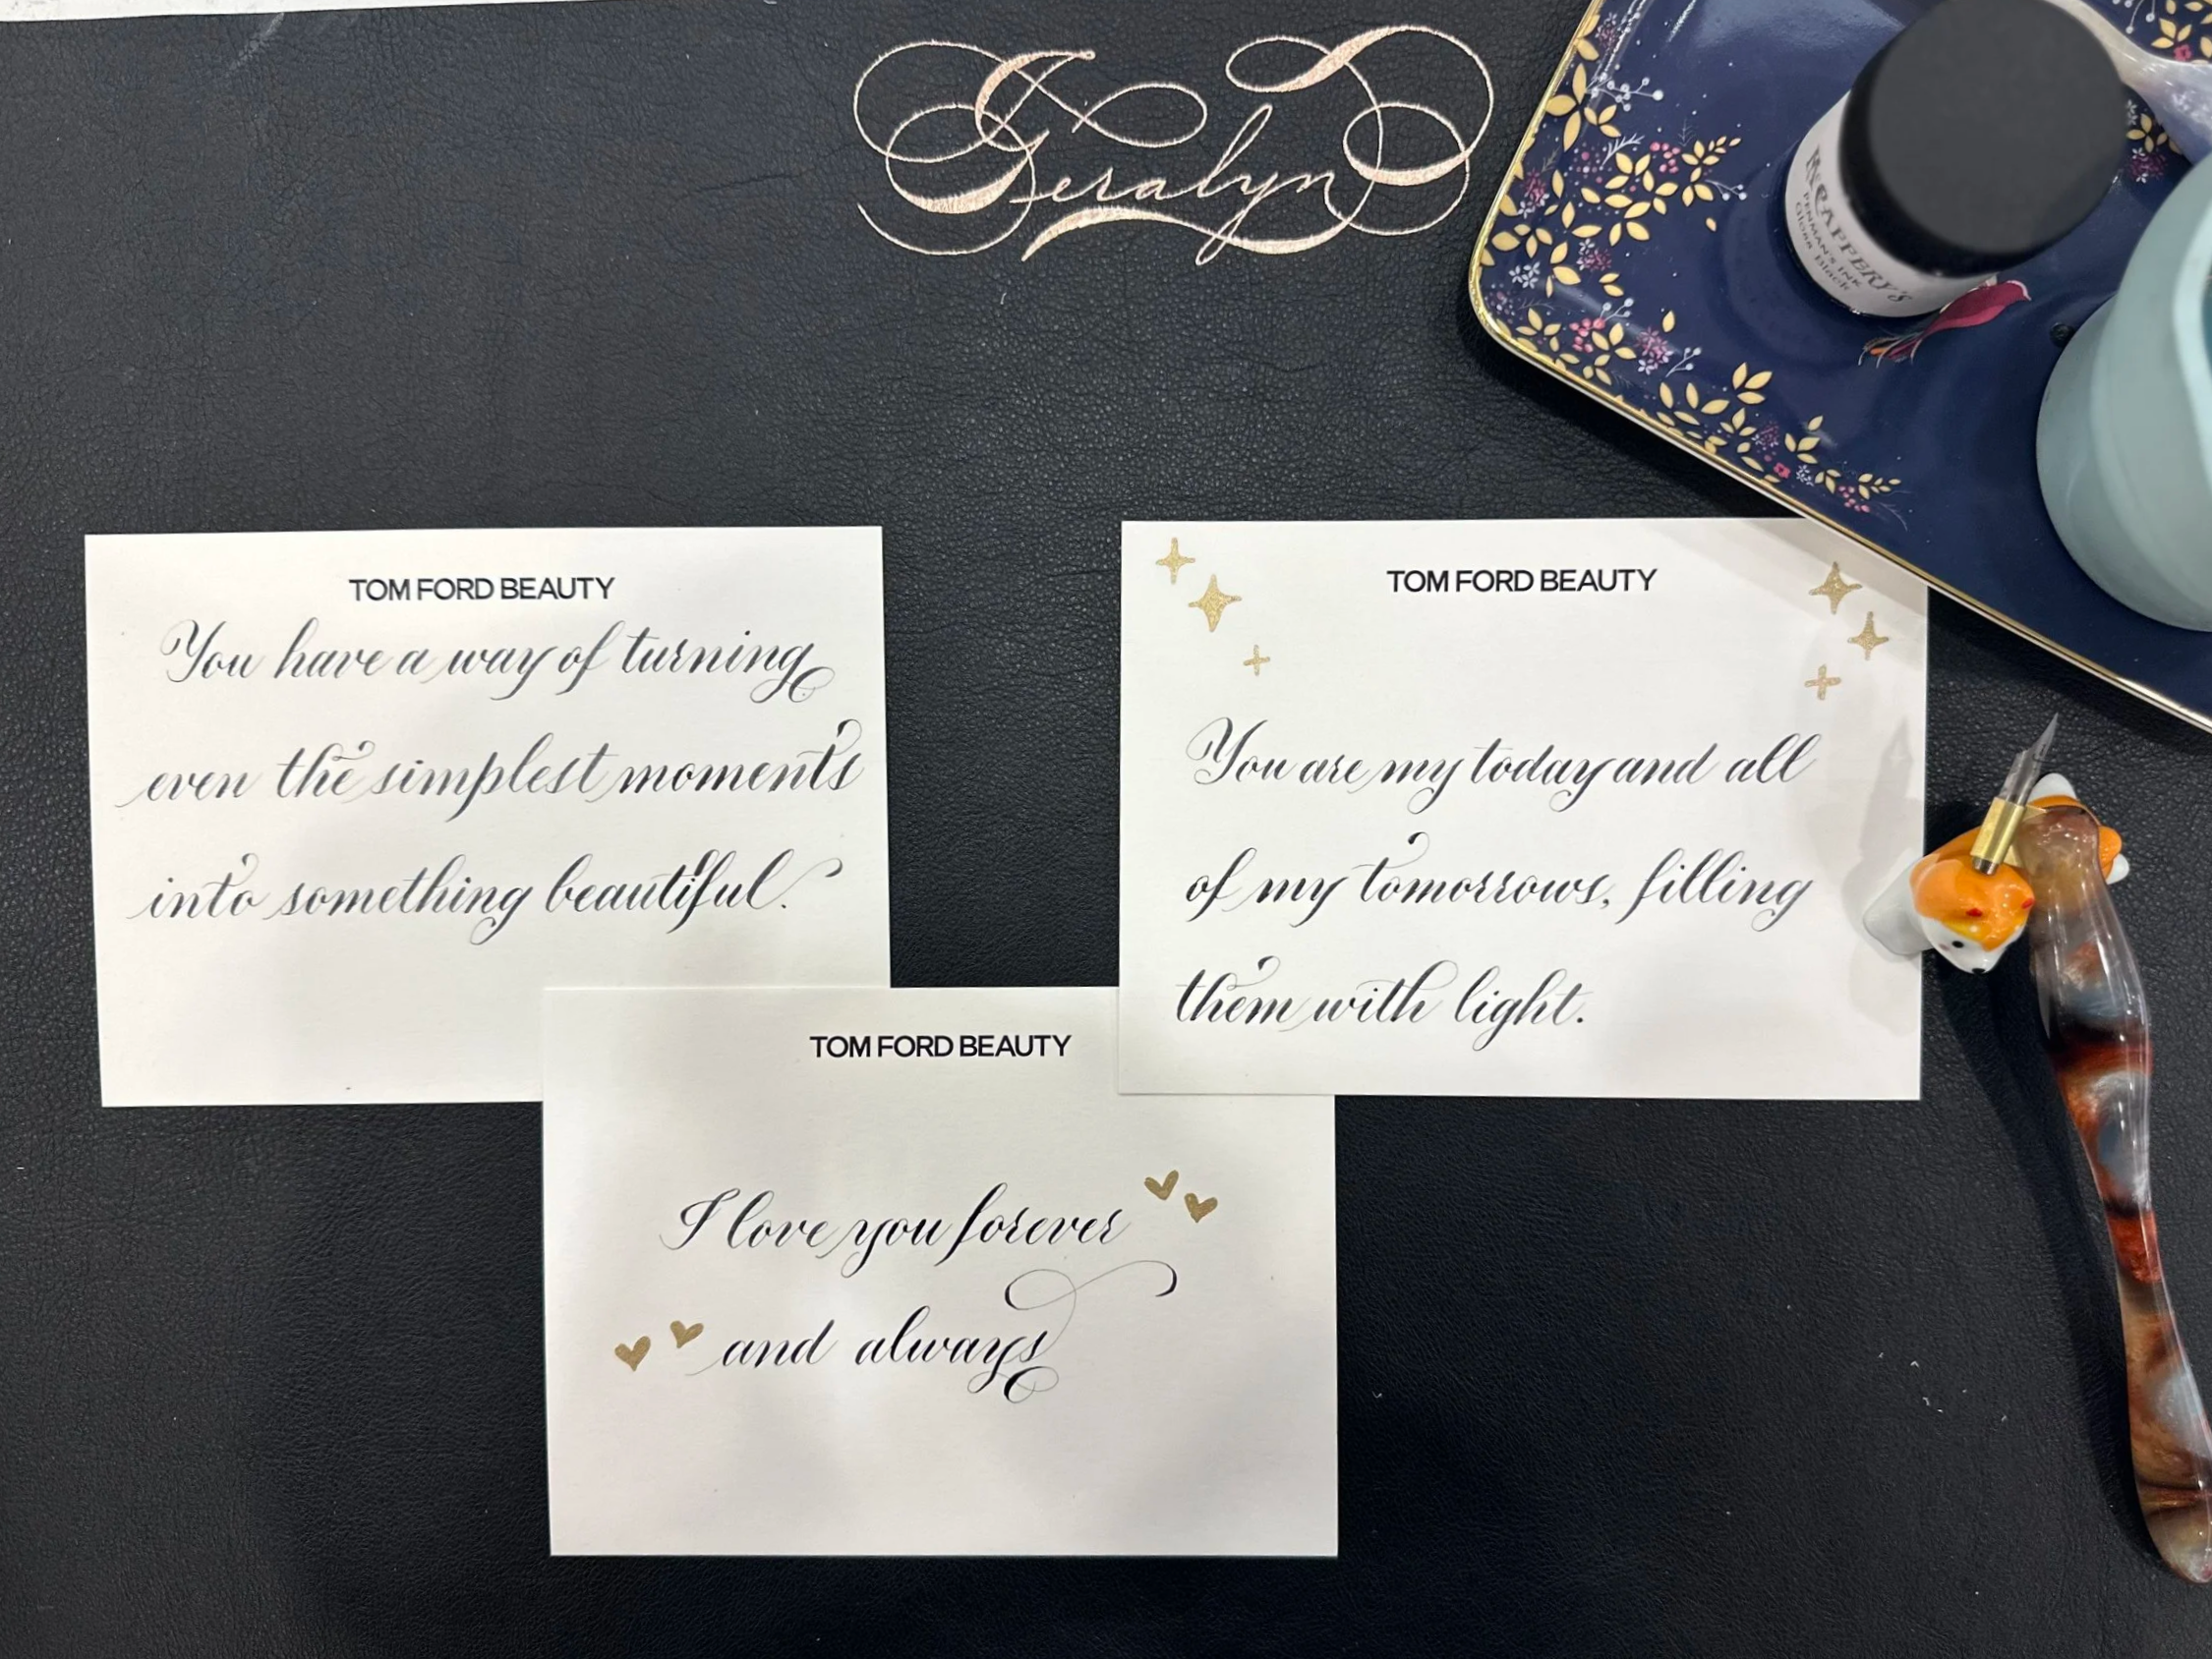 Jeralyn
McCAFFERY'S
PENMAN'S INK
Gloss Black
TOM FORD BEAUTY
You have a way of turning
even the simplest moments
into something beautiful.
TOM FORD BEAUTY
You are my today and all
of my tomorrows, filling
them with light.
TOM FORD BEAUTY
I love you forever
and always